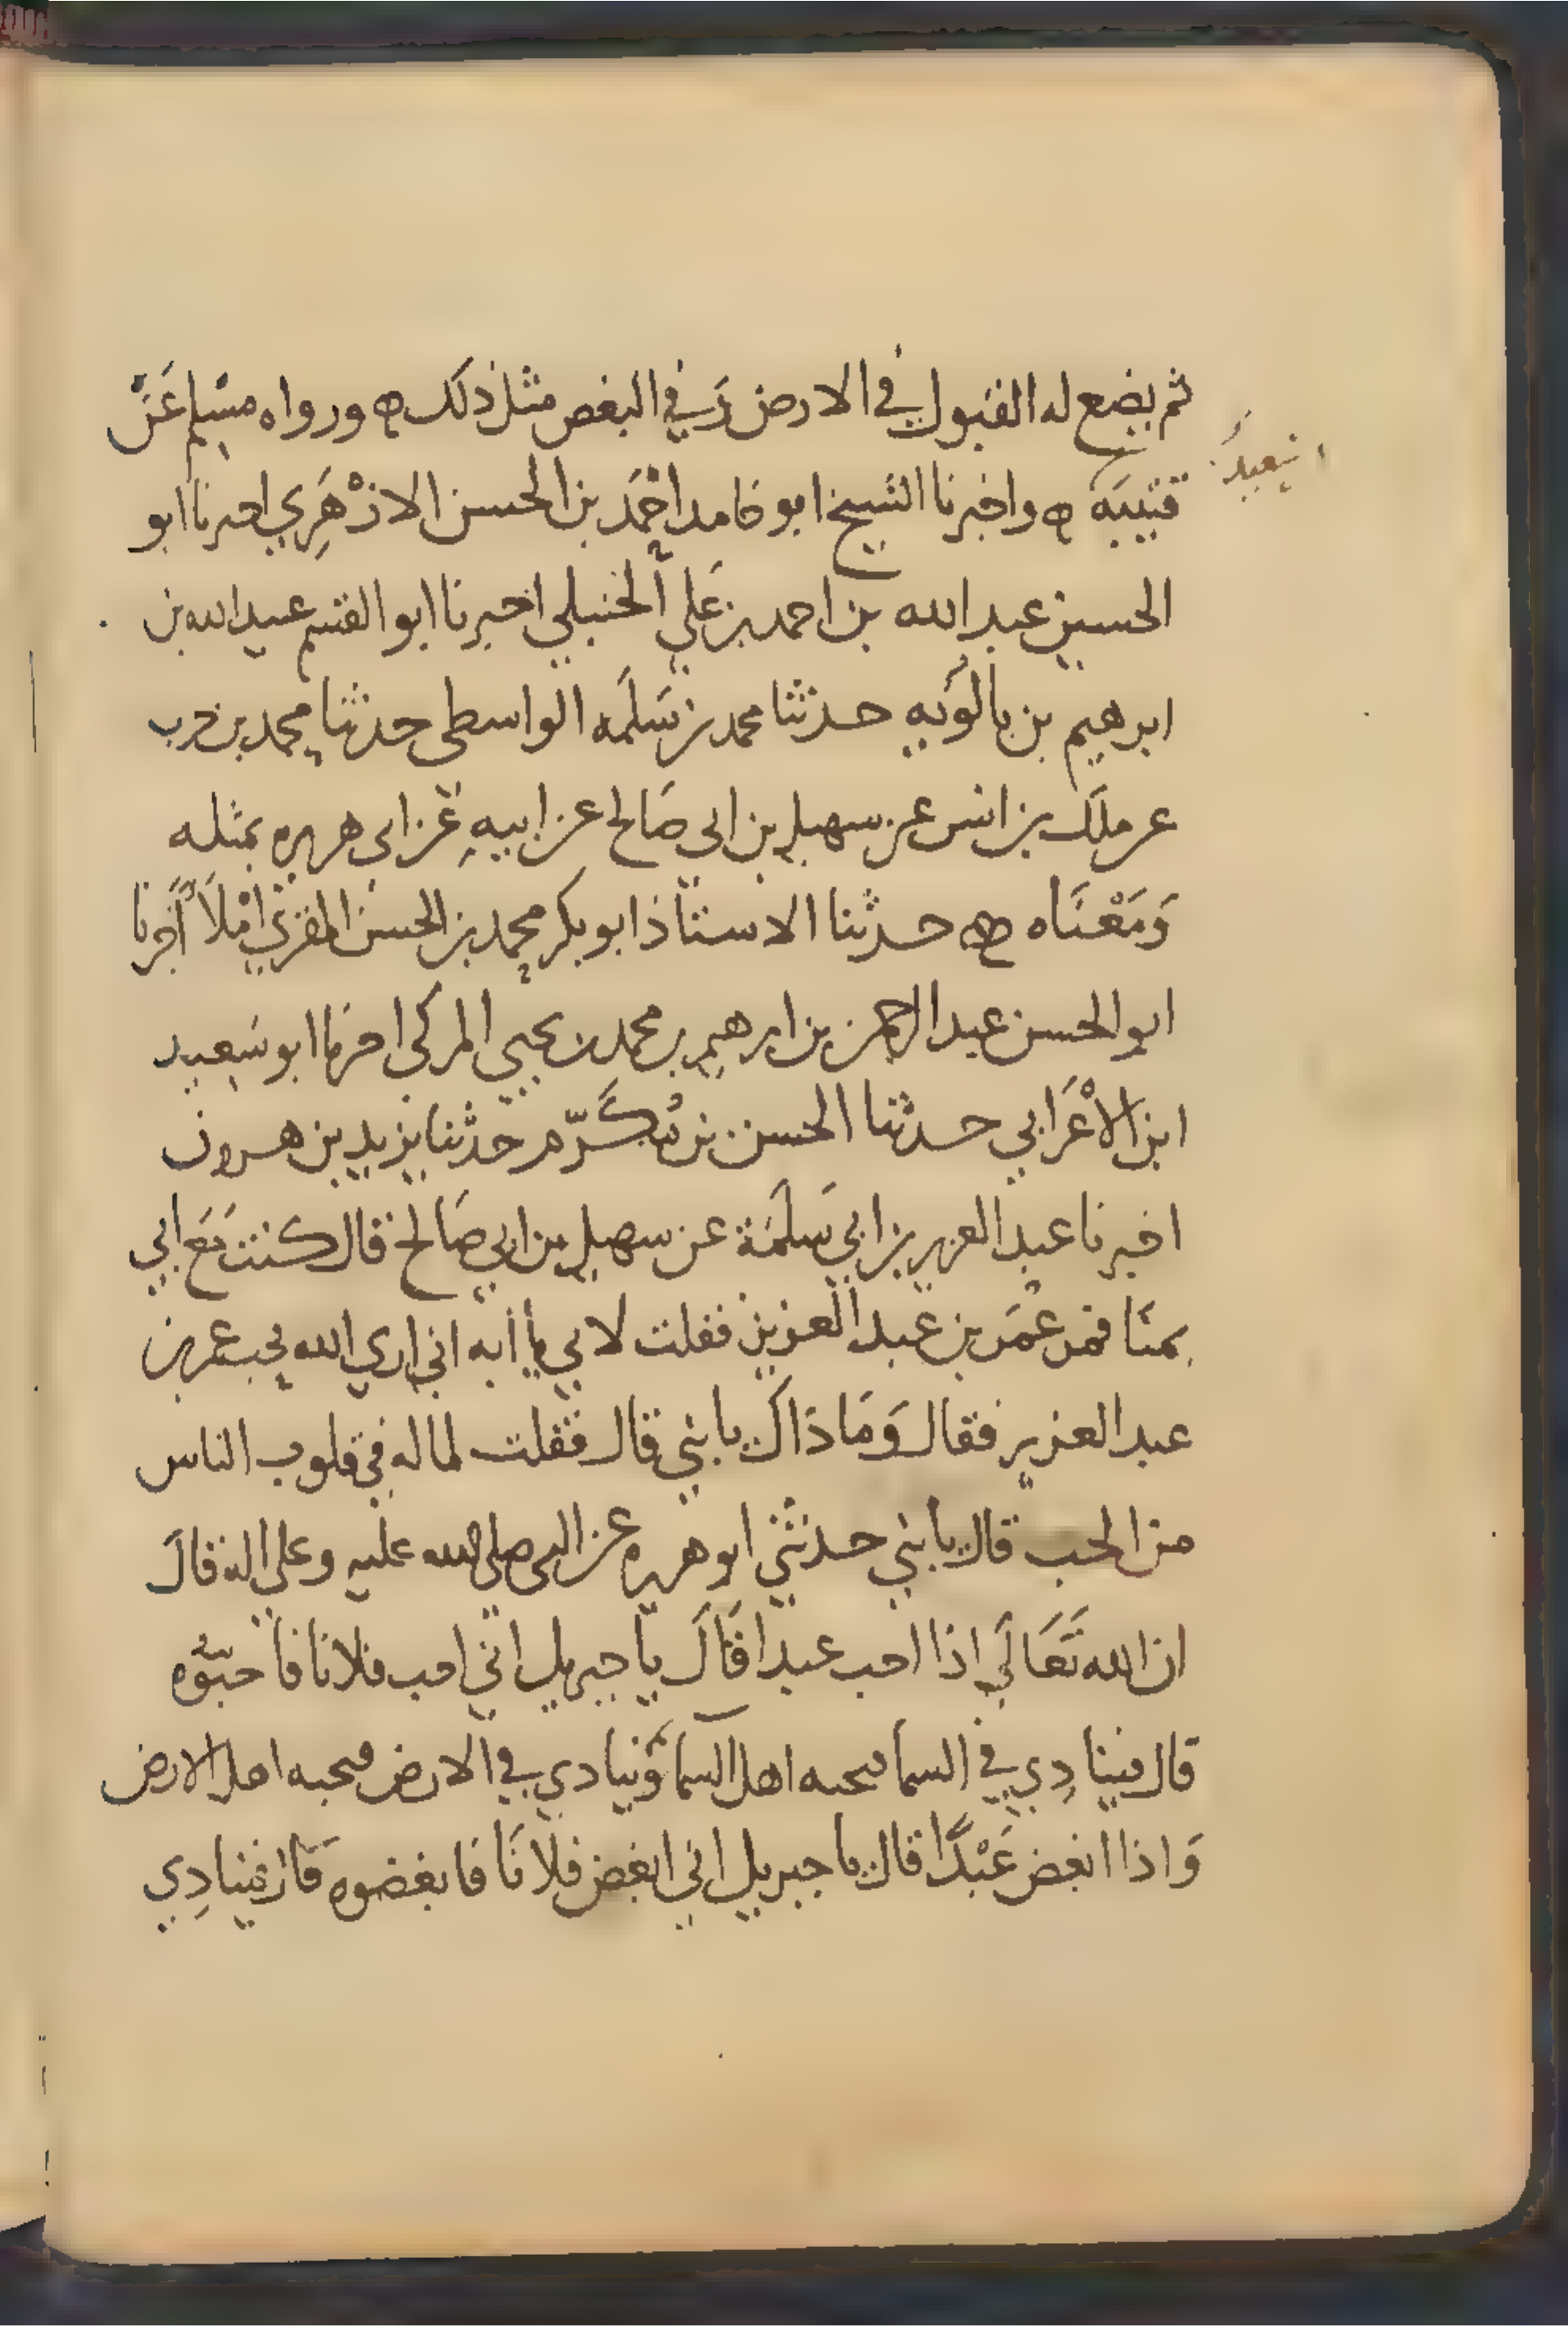 ثم يضع له القبول في الارض وَفي البغض مثل ذلك ه ورواه مسلم عَنْ
قتيبَه ه واخبرنا الشيخ ابو حامد احْمَد بن الحسن الازْهَرِي اخبرنا ابو
الحسين عبد الله بن احمد بن عَلي الحنبلي اخبرنا ابو القسم عبيد الله بن
ابرهيم بن بالُويه حدثنا محمد بن سَلَمَه الواسطي حدثنا محمد بن حرب
عن ملك بن انس عن سهيل بن ابي صَالح عن ابيهِ عَن ابي هريره بمثله
وَمَعْنَاه ه حدثنا الاستاذ ابو بكر محمد بن الحسن المقري امْلَاً اخبرنا
ابو الحسن عبد الرحمن بن ابرهيم بن محمد بن يحيي المزكي اخبرنا ابو سَعيد
ابن الاعْرَابي حدثنا الحسن بن مُكَرَّم حدثنا يزيد بن هرون
اخبرنا عبد العزيز بن ابي سَلَمَة عن سهيل بن ابي صَالح قال كنت مَعَ ابي
بمنَا فمر عُمَر بن عبد العزيز فقلت لابي يا أبه اني اري الله يحب عمر بن
عبد العزيز فقال وَمَا ذَاكَ يا بني قال فقلت لما له في قلوب الناس
من الحب قال يا بني حدثني ابو هريره عن النبي صلي الله عليه وعلي اله قالَ
ان الله تَعَالَي اذا احب عبدا قَالَ يا جبريل اني احب فلانا فاحبّوه
قال فينادِي في السما فيحبه اهل السما وَينادي في الارض فيحبه اهل الارض
وَاذا ابغض عَبْدًا قال يا جبريل اني ابغض فلانَا فابغضوه قال فينادِي